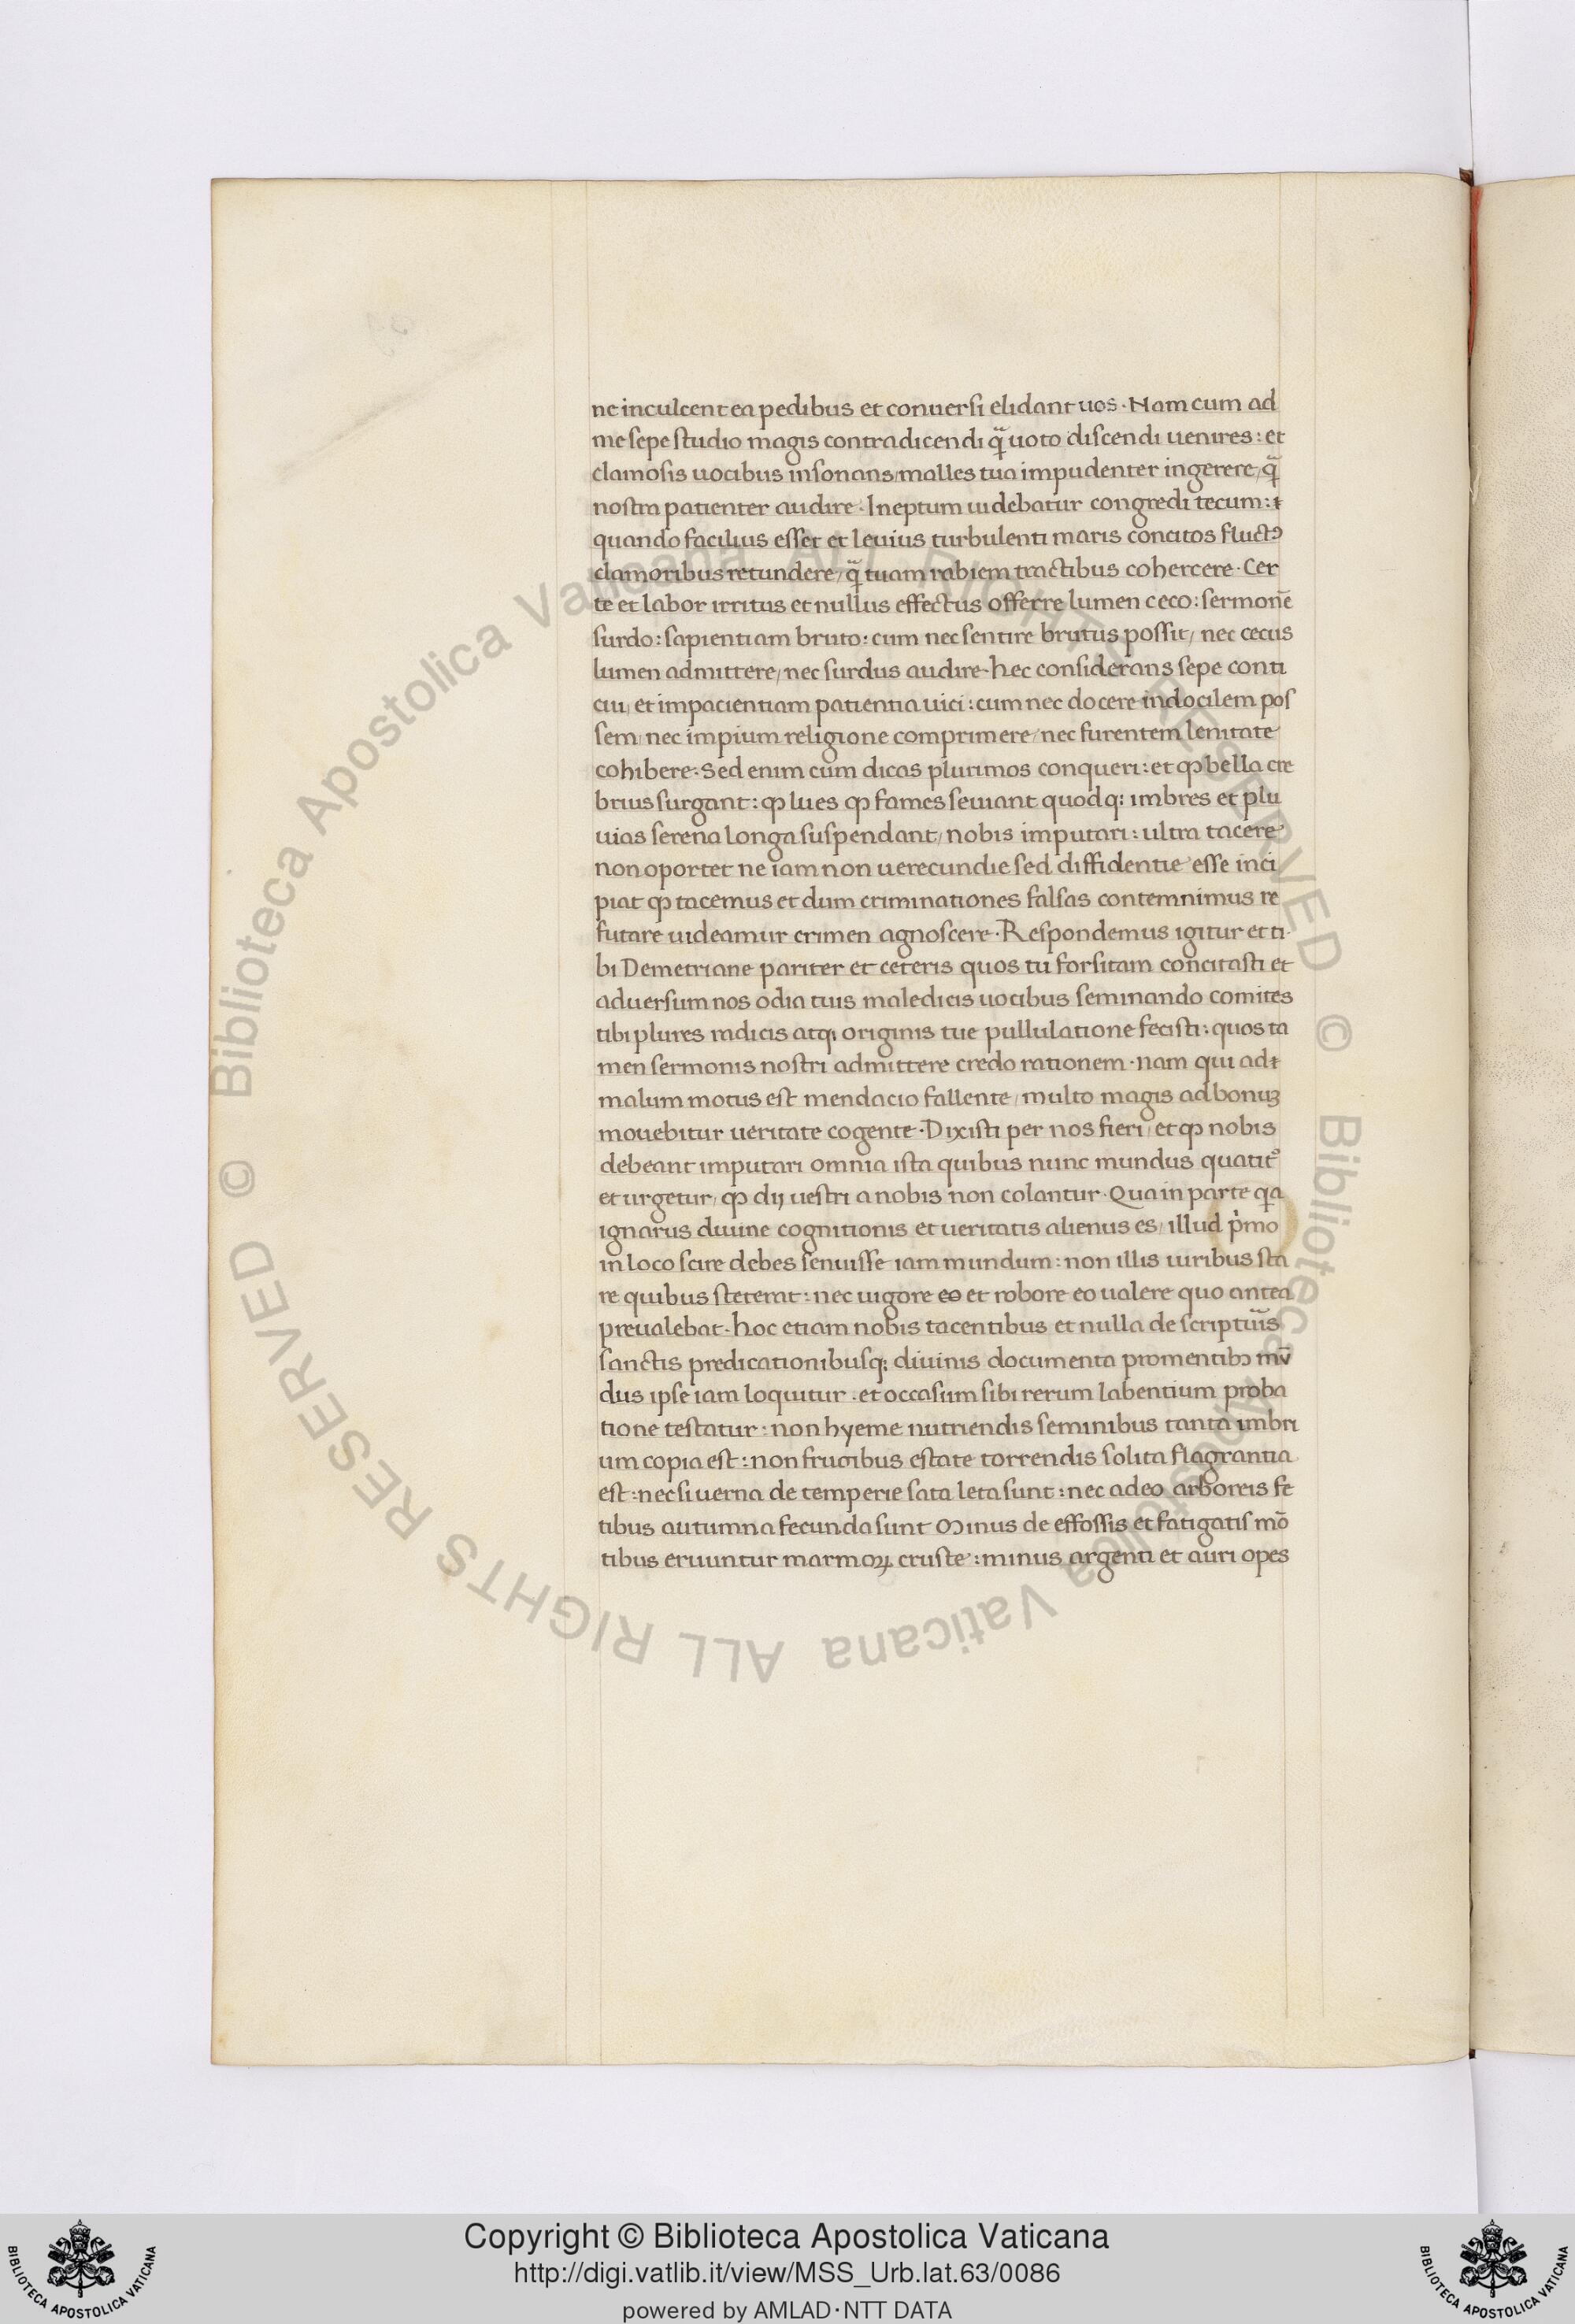 ne inculcent ea pedibus et conuersi elidant uos · Nam cum ad
me sepe studio magis contradicendi q̃ uoto discendi uenires : et
clamosis uocibus insonans / malles tua impudenter ingerere / q̃
nostra patienter audire · Ineptum uidebatur congredi tecum :
quando facilius esset et leuius turbulenti maris concitos fluctꝰ
clamoribus retundere / q̃ tuam rabiem tractibus cohercere · Cer
te et labor irritus et nullus effectus offerre lumen ceco : sermonē
surdo : sapientiam bruto : cum nec sentire brutus possit / nec cecus
lumen admittere / nec surdus audire · hec considerans sepe conti
cui / et impacientiam patientia uici : cum nec docere indocilem pos
sem / nec impium religione comprimere / nec furentem lenitate
cohibere · Sed enim cum dicas plurimos conqueri : et ꝙ bella cre
brius surgant : ꝙ lues ꝙ fames seuiant quodq; imbres et plu
uias serena longa suspendant / nobis imputari : ultra tacere
non oportet ne iam non uerecundie sed diffidentie esse inci
piat ꝙ tacemus et dum criminationes falsas contemnimus re
futare uideamur crimen agnoscere · Respondemus igitur et ti
bi Demetriane pariter et ceteris quos tu forsitam concitasti et
aduersum nos odia tuis maledicis uocibus seminando comites
tibi plures radicis atq; originis tue pullulatione fecisti : quos ta
men sermonis nostri admittere credo rationem · nam qui ad
malum motus est mendacio fallente / multo magis ad bonuꝫ
mouebitur ueritate cogente · Dixisti per nos fieri / et ꝙ nobis
debeant imputari omnia ista quibus nunc mundus quatit᷑
et urgetur / ꝙ dij uestri a nobis non colantur · Qua in parte qa
ignarus diuine cognitionis et ueritatis alienus es / illud pͥmo
in loco scire debes senuisse iam mundum : non illis uiribus sta
re quibus steterat : nec uigore eo et robore eo ualere quo antea
preualebat · hoc etiam nobis tacentibus et nulla de scriptur̃is
sanctis predicationibusq; diuinis documenta promentibꝰ mū
dus ipse iam loquitur : et occasum sibi rerum labentium proba
tione testatur : non hyeme nutriendis seminibus tanta imbri
um copia est : non frugibus estate torrendis solita flagrantia
est : nec si uerna de temperie sata leta sunt : nec adeo arboreis fe
tibus autumna fecunda sunt Minus de effossis et fatigatis mō
tibus eruuntur marmoꝝ cruste : minus argenti et auri opes
Copyright © Biblioteca Apostolica Vaticana
http://digi.vatlib.it/view/MSS_Urb.lat.63/0086
powered by AMLAD·NTT DATA
BIBLIOTECA APOSTOLICA VATICANA
BIBLIOTECA APOSTOLICA VATICANA
© Biblioteca Apostolica Vaticana ALL RIGHTS RESERVED © Biblioteca Apostolica Vaticana ALL RIGHTS RESERVED